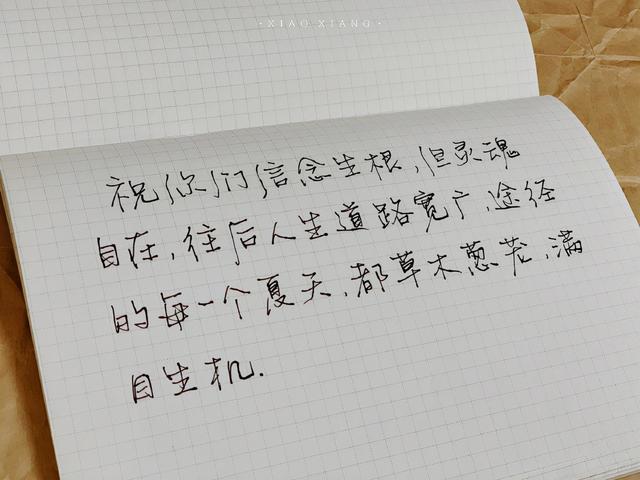 ·XIAO XIANG·
祝你们信念生根,但灵魂
自在,往后人生道路宽广,途经
的每一个夏天,都草木葱茏,满
目生机.